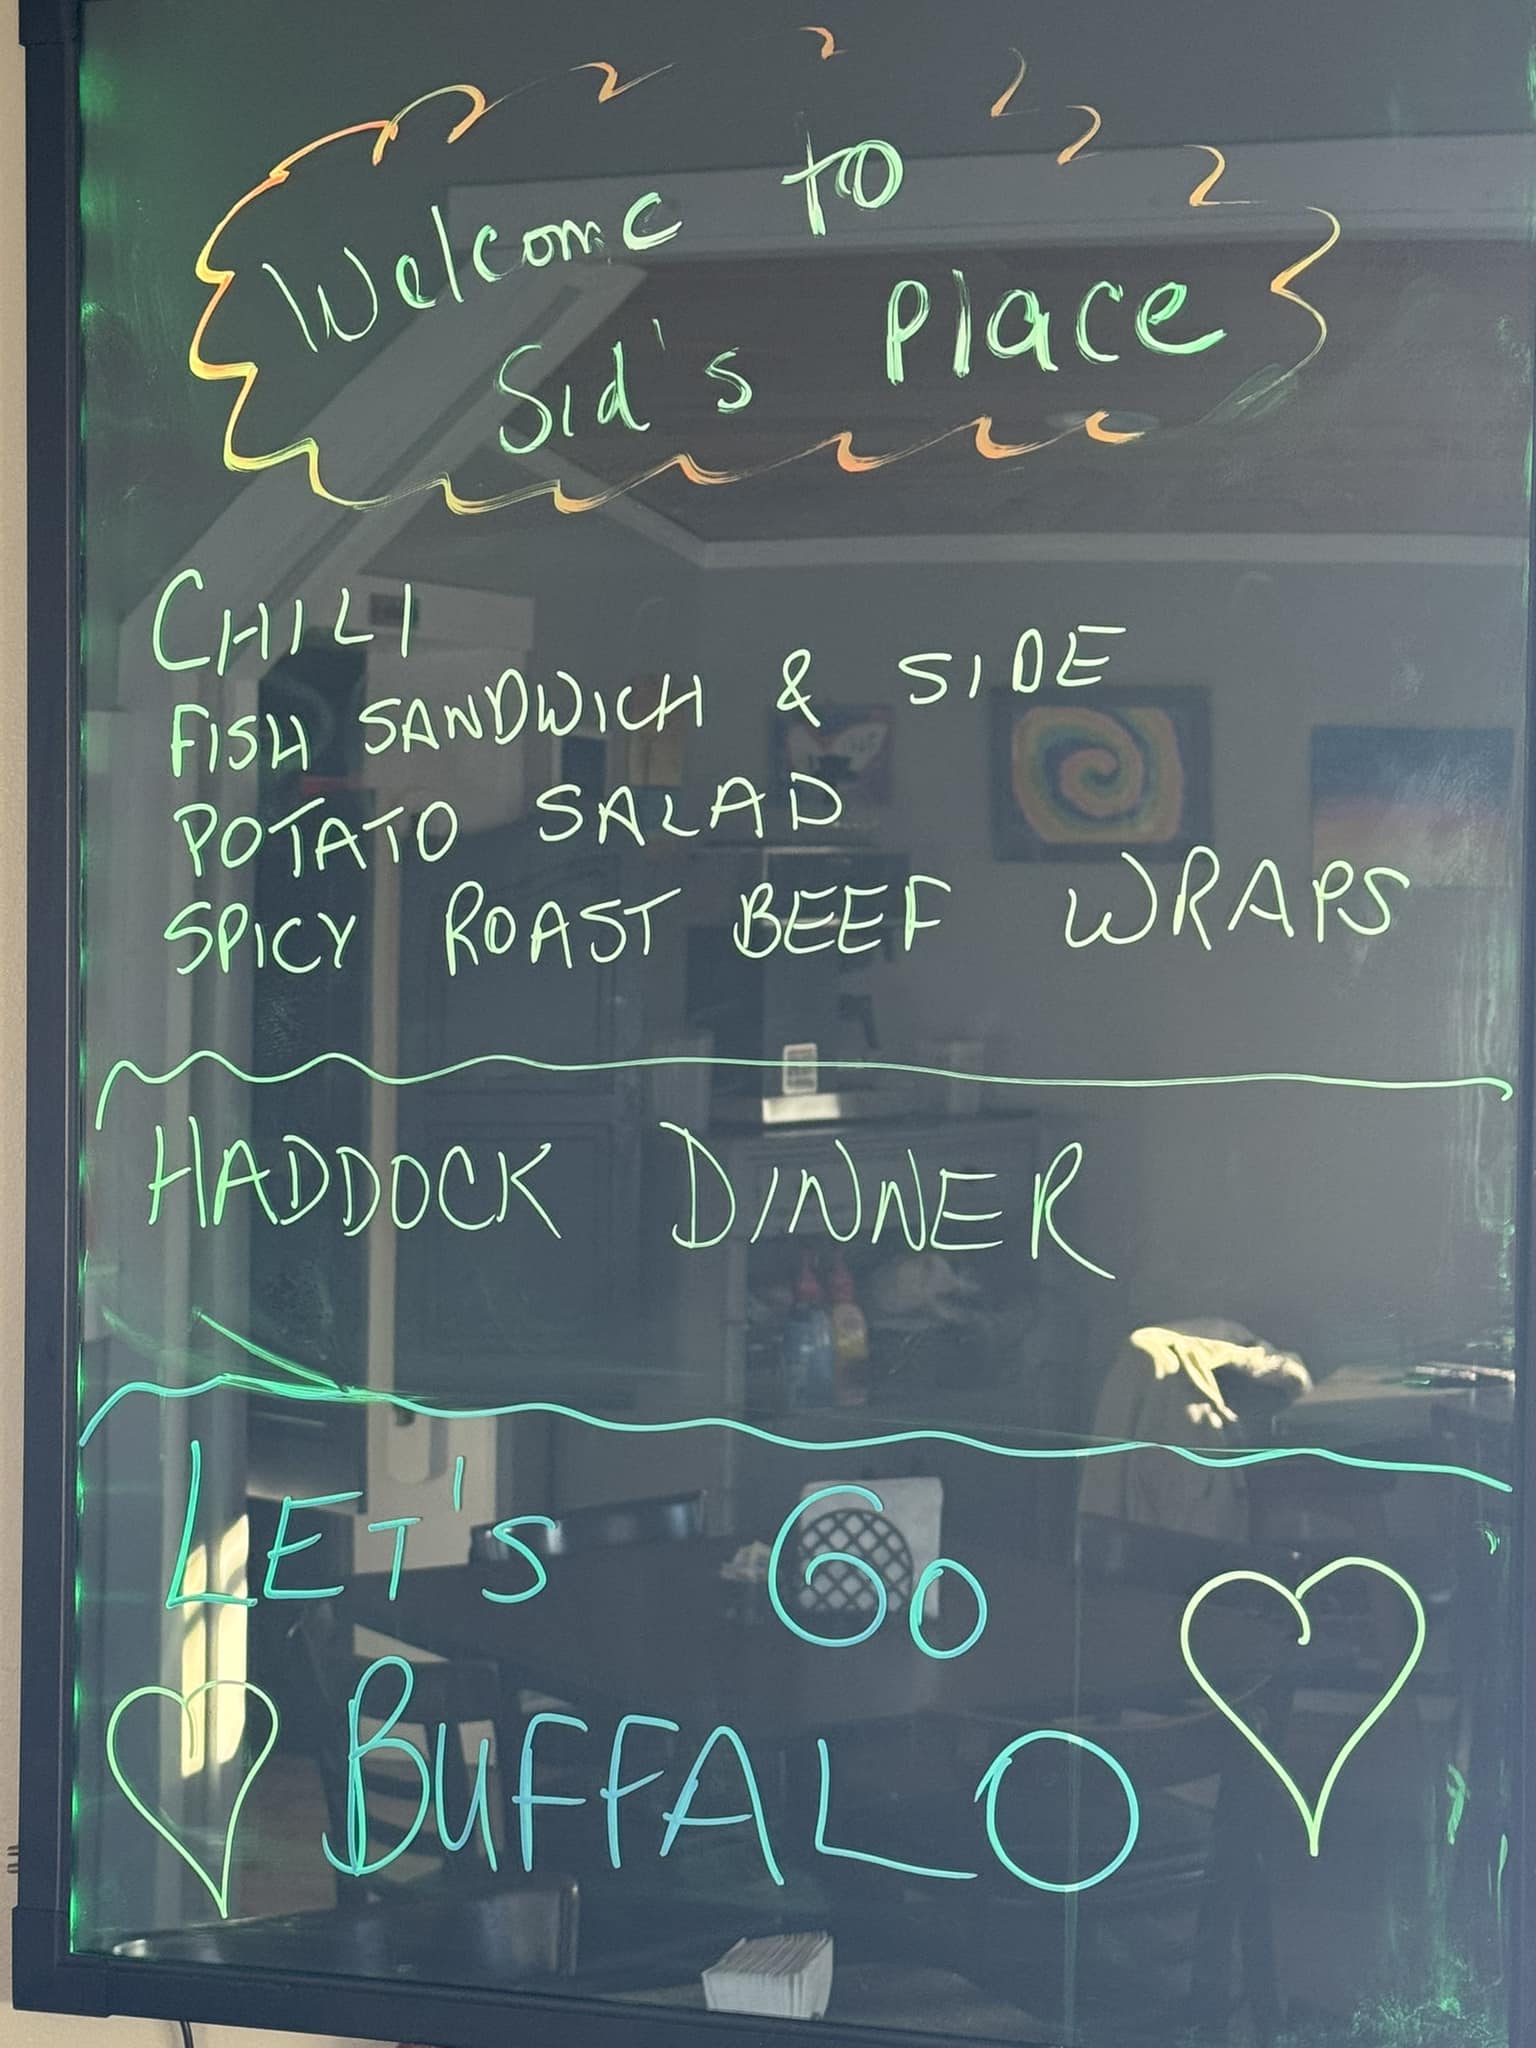 Welcome to
Sid's Place
CHILI
FISH SANDWICH & SIDE
POTATO SALAD
SPICY ROAST BEEF WRAPS
HADDOCK DINNER
LET'S GO
BUFFALO